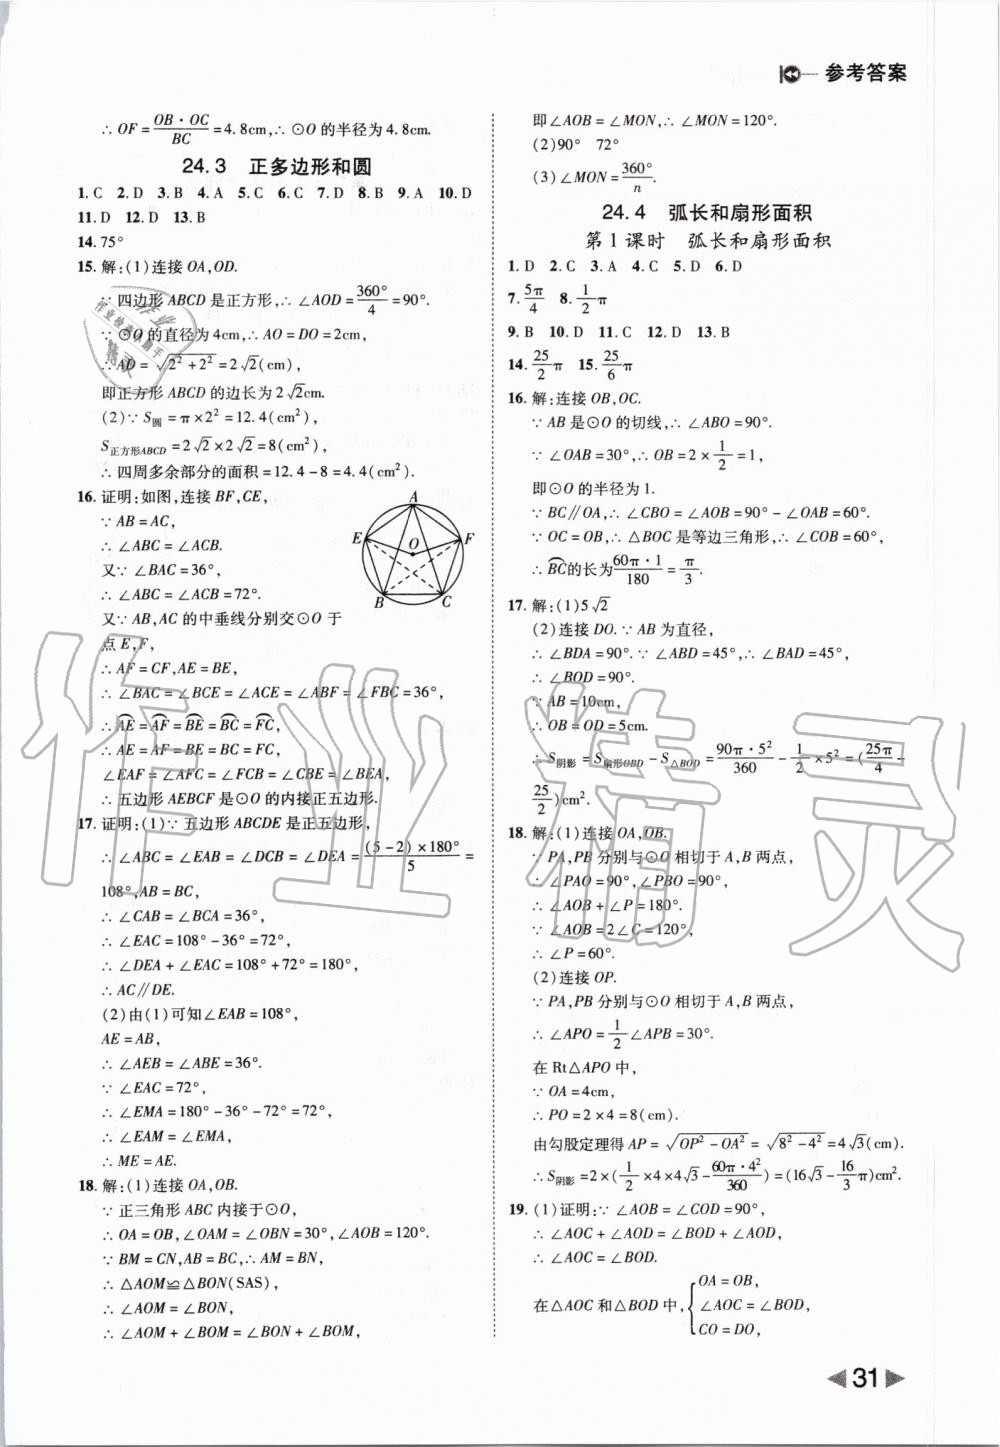 参考答案
∴ OF = OB·OC/BC = 4.8cm,∴ ⊙O 的半径为 4.8cm.
24.3 正多边形和圆
1. C 2. D 3. B 4. A 5. C 6. D 7. D 8. B 9. A 10. D
11. D 12. D 13. B
14. 75°
15. 解:(1)连接 OA,OD.
∵ 四边形 ABCD 是正方形,∴ ∠AOD = 360°/4 = 90°.
∵ ⊙O 的直径为 4cm,∴ AO = DO = 2cm,
∴ AD = √(2²+2²) = 2√2(cm),
即正方形 ABCD 的边长为 2√2cm.
(2)∵ S圆 = π×2² = 12.4(cm²),
S正方形ABCD = 2√2×2√2 = 8(cm²),
∴ 四周多余部分的面积 = 12.4 - 8 = 4.4(cm²).
16. 证明:如图,连接 BF,CE,
∵ AB = AC,
∴ ∠ABC = ∠ACB.
又∵ ∠BAC = 36°,
∴ ∠ABC = ∠ACB = 72°.
又∵ AB,AC 的中垂线分别交⊙O 于
点 E,F,
∴ AF = CF,AE = BE,
∴ ∠BAC = ∠BCE = ∠ACE = ∠ABF = ∠FBC = 36°,
∴ ⌒AE = ⌒AF = ⌒BE = ⌒BC = ⌒FC,
∴ AE = AF = BE = BC = FC,
∠EAF = ∠AFC = ∠FCB = ∠CBE = ∠BEA,
∴ 五边形 AEBCF 是⊙O 的内接正五边形.
A
E
O
F
B
C
17. 证明:(1)∵ 五边形 ABCDE 是正五边形,
∴ ∠ABC = ∠EAB = ∠DCB = ∠DEA = (5-2)×180°/5 =
108°,AB = BC,
∴ ∠CAB = ∠BCA = 36°,
∴ ∠EAC = 108° - 36° = 72°,
∴ ∠DEA + ∠EAC = 108° + 72° = 180°,
∴ AC∥DE.
(2)由(1)可知∠EAB = 108°,
AE = AB,
∴ ∠AEB = ∠ABE = 36°.
∵ ∠EAC = 72°,
∴ ∠EMA = 180° - 36° - 72° = 72°,
∴ ∠EAM = ∠EMA,
∴ ME = AE.
18. 解:(1)连接 OA,OB.
∵ 正三角形 ABC 内接于⊙O,
∴ OA = OB,∠OAM = ∠OBN = 30°,∠AOB = 120°.
∵ BM = CN,AB = BC,∴ AM = BN,
∴ △AOM≌△BON(SAS),
∴ ∠AOM = ∠BON,
∴ ∠AOM + ∠BOM = ∠BON + ∠BOM,
即∠AOB = ∠MON,∴ ∠MON = 120°.
(2)90° 72°
(3)∠MON = 360°/n.
24.4 弧长和扇形面积
第 1 课时 弧长和扇形面积
1. D 2. C 3. A 4. C 5. D 6. D
7. 5π/4 8. 1/2π
9. B 10. D 11. C 12. D 13. B
14. 25/2π 15. 25/6π
16. 解:连接 OB,OC.
∵ AB 是⊙O 的切线,∴ ∠ABO = 90°.
∵ ∠OAB = 30°,∴ OB = 2×1/2 = 1,
即⊙O 的半径为 1.
∵ BC∥OA,∴ ∠CBO = ∠AOB = 90° - ∠OAB = 60°.
∵ OC = OB,∴ △BOC 是等边三角形,∴ ∠COB = 60°,
∴ ⌒BC的长为 60π·1/180 = π/3.
17. 解:(1)5√2
(2)连接 DO. ∵ AB 为直径,
∴ ∠BDA = 90°. ∵ ∠ABD = 45°,∴ ∠BAD = 45°,
∴ ∠BOD = 90°.
∵ AB = 10cm,
∴ OB = OD = 5cm.
∴ S阴影 = S扇形OBD - S△BOD = 90π·5²/360 - 1/2×5² = (25π/4 -
25/2)cm².
18. 解:(1)连接 OA,OB.
∵ PA,PB 分别与⊙O 相切于 A,B 两点,
∴ ∠PAO = 90°,∠PBO = 90°,
∴ ∠AOB + ∠P = 180°.
∵ ∠AOB = 2∠C = 120°,
∴ ∠P = 60°.
(2)连接 OP.
∵ PA,PB 分别与⊙O 相切于 A,B 两点,
∴ ∠APO = 1/2∠APB = 30°.
在 Rt△APO 中,
∵ OA = 4cm,
∴ PO = 2×4 = 8(cm).
由勾股定理得 AP = √(OP²-OA²) = √(8²-4²) = 4√3(cm).
∴ S阴影 = 2×(1/2×4×4√3 - 60π·4²/360) = (16√3 - 16/3π)cm².
19. (1)证明:∵ ∠AOB = ∠COD = 90°,
∴ ∠AOC + ∠AOD = ∠BOD + ∠AOD,
∴ ∠AOC = ∠BOD.
在△AOC 和△BOD 中,{OA = OB,
∠AOC = ∠BOD,
CO = DO,
31
作业精灵